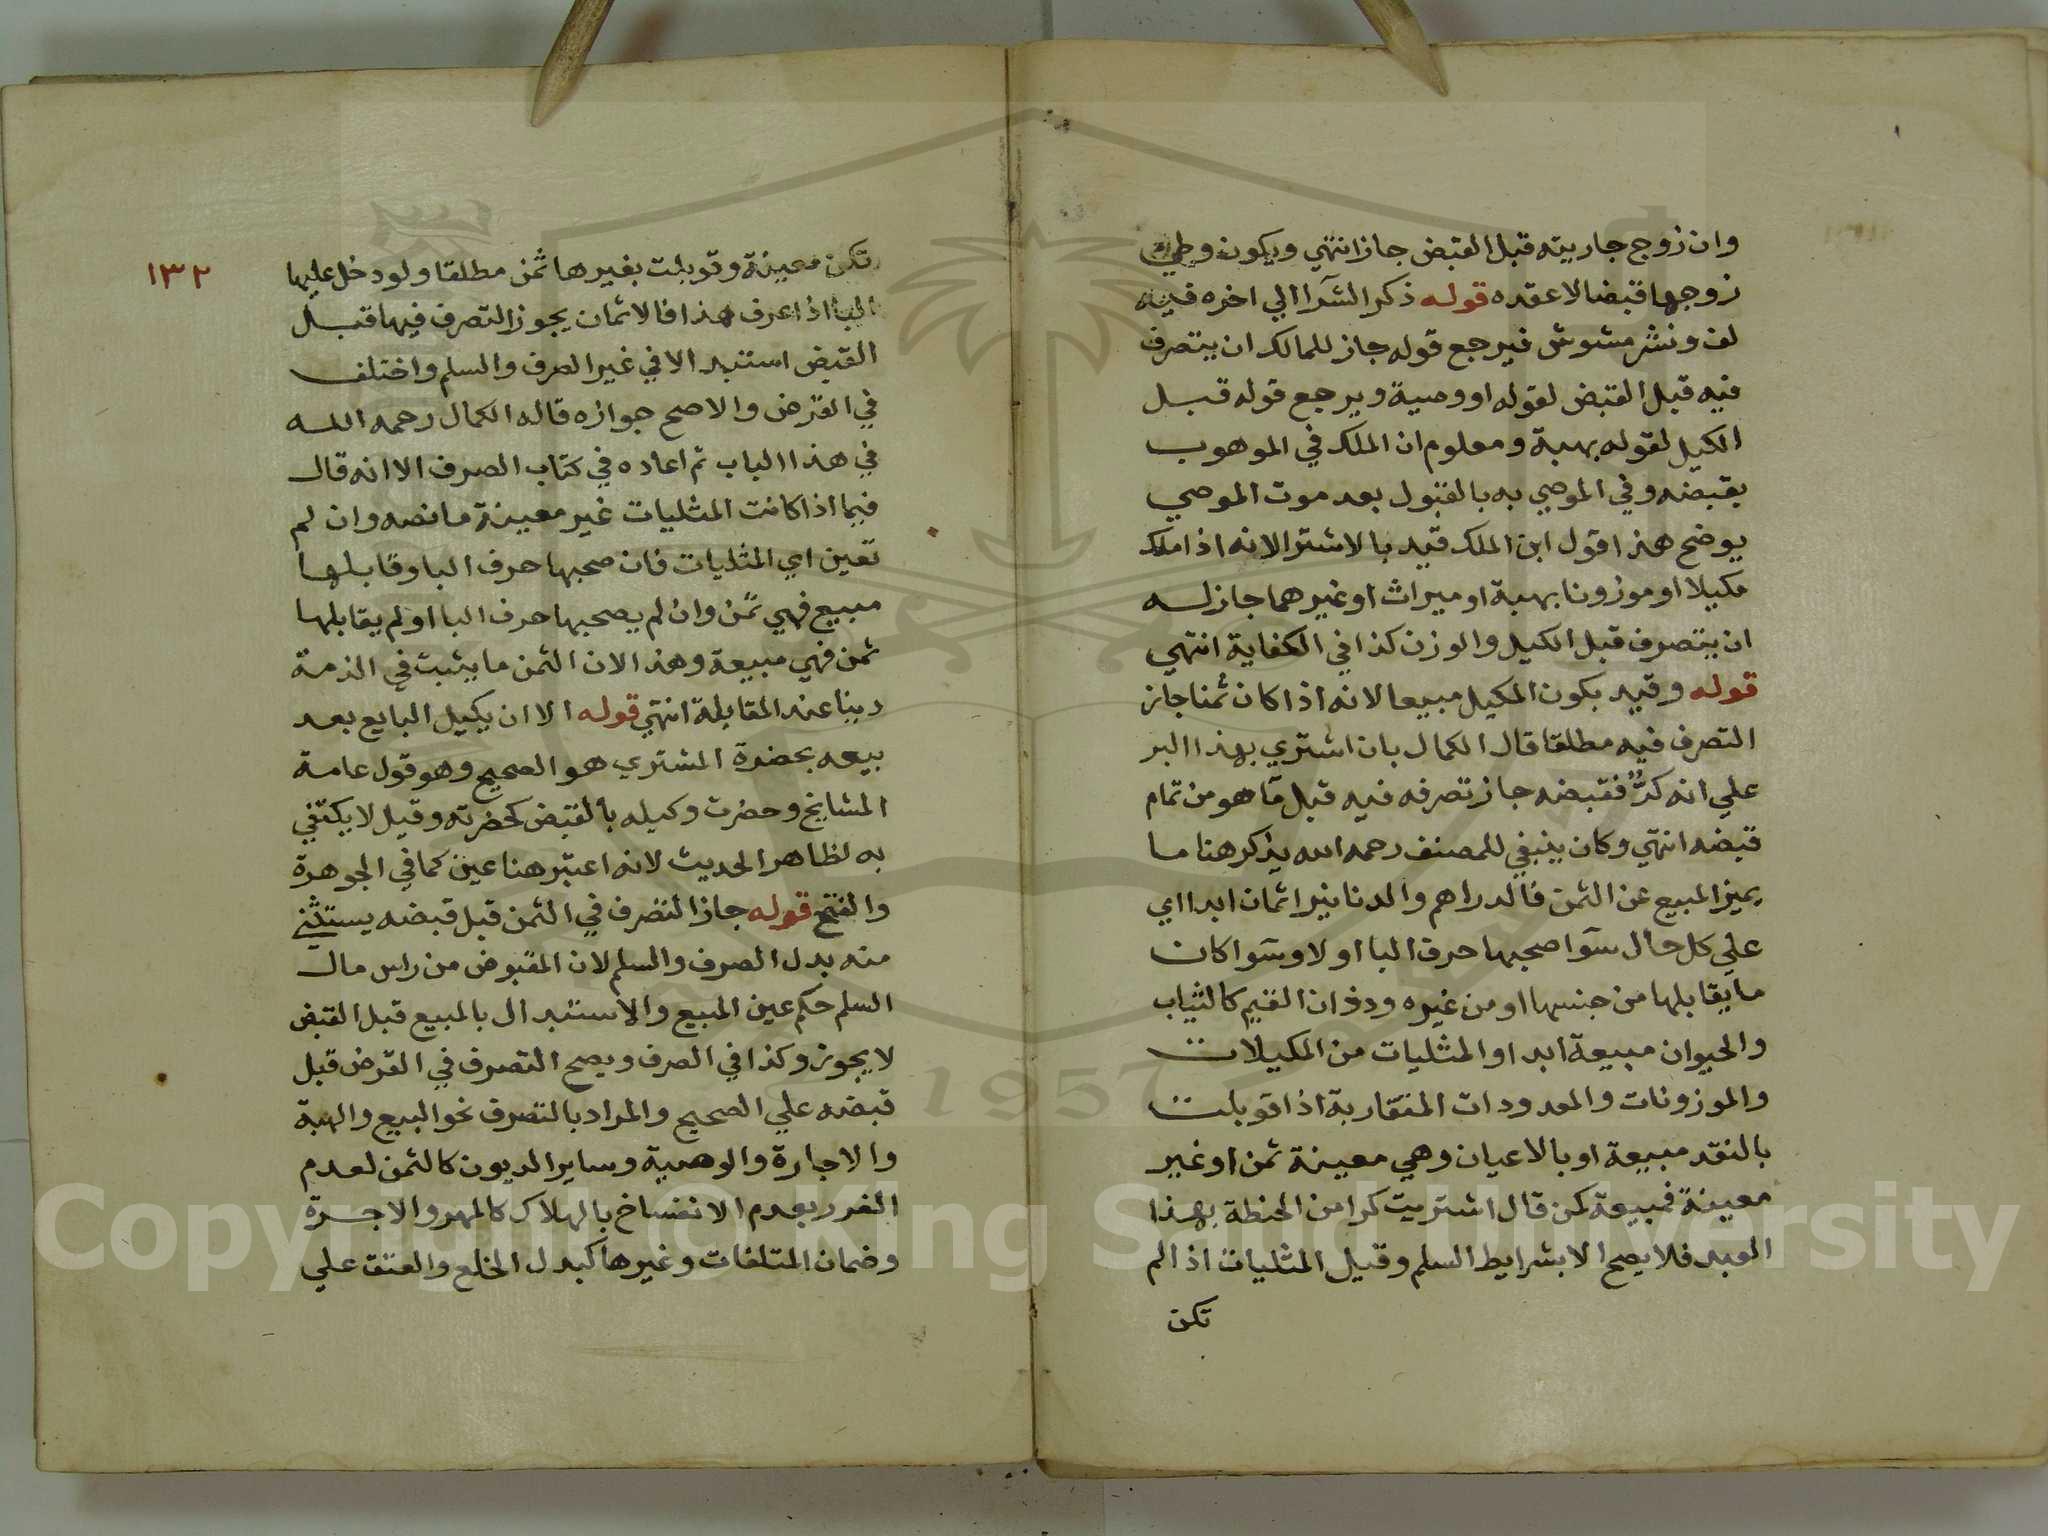 وان زوج جاريته قبل القبض جاز انتهي ويكون وطي
زوجها قبضا لا عقده قوله ذكر الشرآ الي اخره فيه
لف ونشر مشوش فيرجع قوله جاز للمالك ان يتصرف
فيه قبل القبض لقوله او وصية ويرجع قوله قبل
الكيل لقوله بهبة ومعلوم ان الملك في الموهوب
بقبضه وفي الموصي به بالقبول بعد موت الموصي
يوضح هذا قول ابن الملك قيد بالاشترا لانه اذا ملك
مكيلا او موزونا بهبة او ميراث او غيرهما جاز له
ان يتصرف قبل الكيل والوزن كذا في الكفاية انتهي
قوله وقيد بكون المكيل مبيعا لانه اذا كان ثمنا جاز
التصرف فيه مطلقا قال الكمال بان اشتري بهذا البر
علي انه كرٌّ فقبضه جاز تصرفه فيه قبل ما هو من تمام
قبضه انتهي وكان ينبغي للمصنف رحمه الله يذكر هنا ما
يميز المبيع عن الثمن فالدراهم والدنانير اثمان ابدا اي
علي كل حال سوا صحبها حرف البا او لا وسوا كان
ما يقابلها من جنسها او من غيره وذوان القيم كالثياب
والحيوان مبيعة ابدا والمثليات من المكيلات
والموزونات والمعدودات المتقاربة اذا قوبلت
بالنقد مبيعة او بالاعيان وهي معينة ثمن او غير
معينة فمبيعة كمن قال اشتريت كرا من الحنطة بهذا
العبد فلا يصح الا بشرايط السلم وقيل المثليات اذا لم
تكن
١٣٢
تكن معينة وقوبلت بغيرها ثمن مطلقا ولو دخل عليها
البا اذا عرف هذا فالاثمان يجوز التصرف فيها قبل
القبض استبدالا في غير الصرف والسلم واختلف
في القرض والاصح جوازه قاله الكمال رحمه الله
في هذا الباب ثم اعاده في كتاب الصرف الا انه قال
فيما اذا كانت المثليات غير معينة ما نصه وان لم
تعين اي المثليات فان صحبها حرف البا وقابلها
مبيع فهي ثمن وان لم يصحبها حرف البا او لم يقابلها
ثمن فهي مبيعة وهذا لان الثمن ما يثبت في الذمة
دينا عند المقابلة انتهي قوله الا ان يكيل البايع بعد
بيعه بحضرة المشتري هو الصحيح وهو قول عامة
المشايخ وحضرت وكيله بالقبض كحضرته وقيل لا يكتفي
به لظاهر الحديث لانه اعتبر هنا عين كما في الجوهرة
والفتح قوله جاز التصرف في الثمن قبل قبضه يستثني
منه بدل الصرف والسلم لان المقبوض من راس مال
السلم حكم عين المبيع والاستبدال بالمبيع قبل القبض
لا يجوز وكذا في الصرف ويصح التصرف في القرض قبل
قبضه علي الصحيح والمراد بالتصرف نحو البيع والهبة
والاجارة والوصية وساير الديون كالثمن لعدم
الغرر بعدم الانفساخ بالهلاك كالمهر والاجرة
وضمان المتلفات وغيرها كبدل الخلع والعتق علي
Copyright © King Saud University
1957